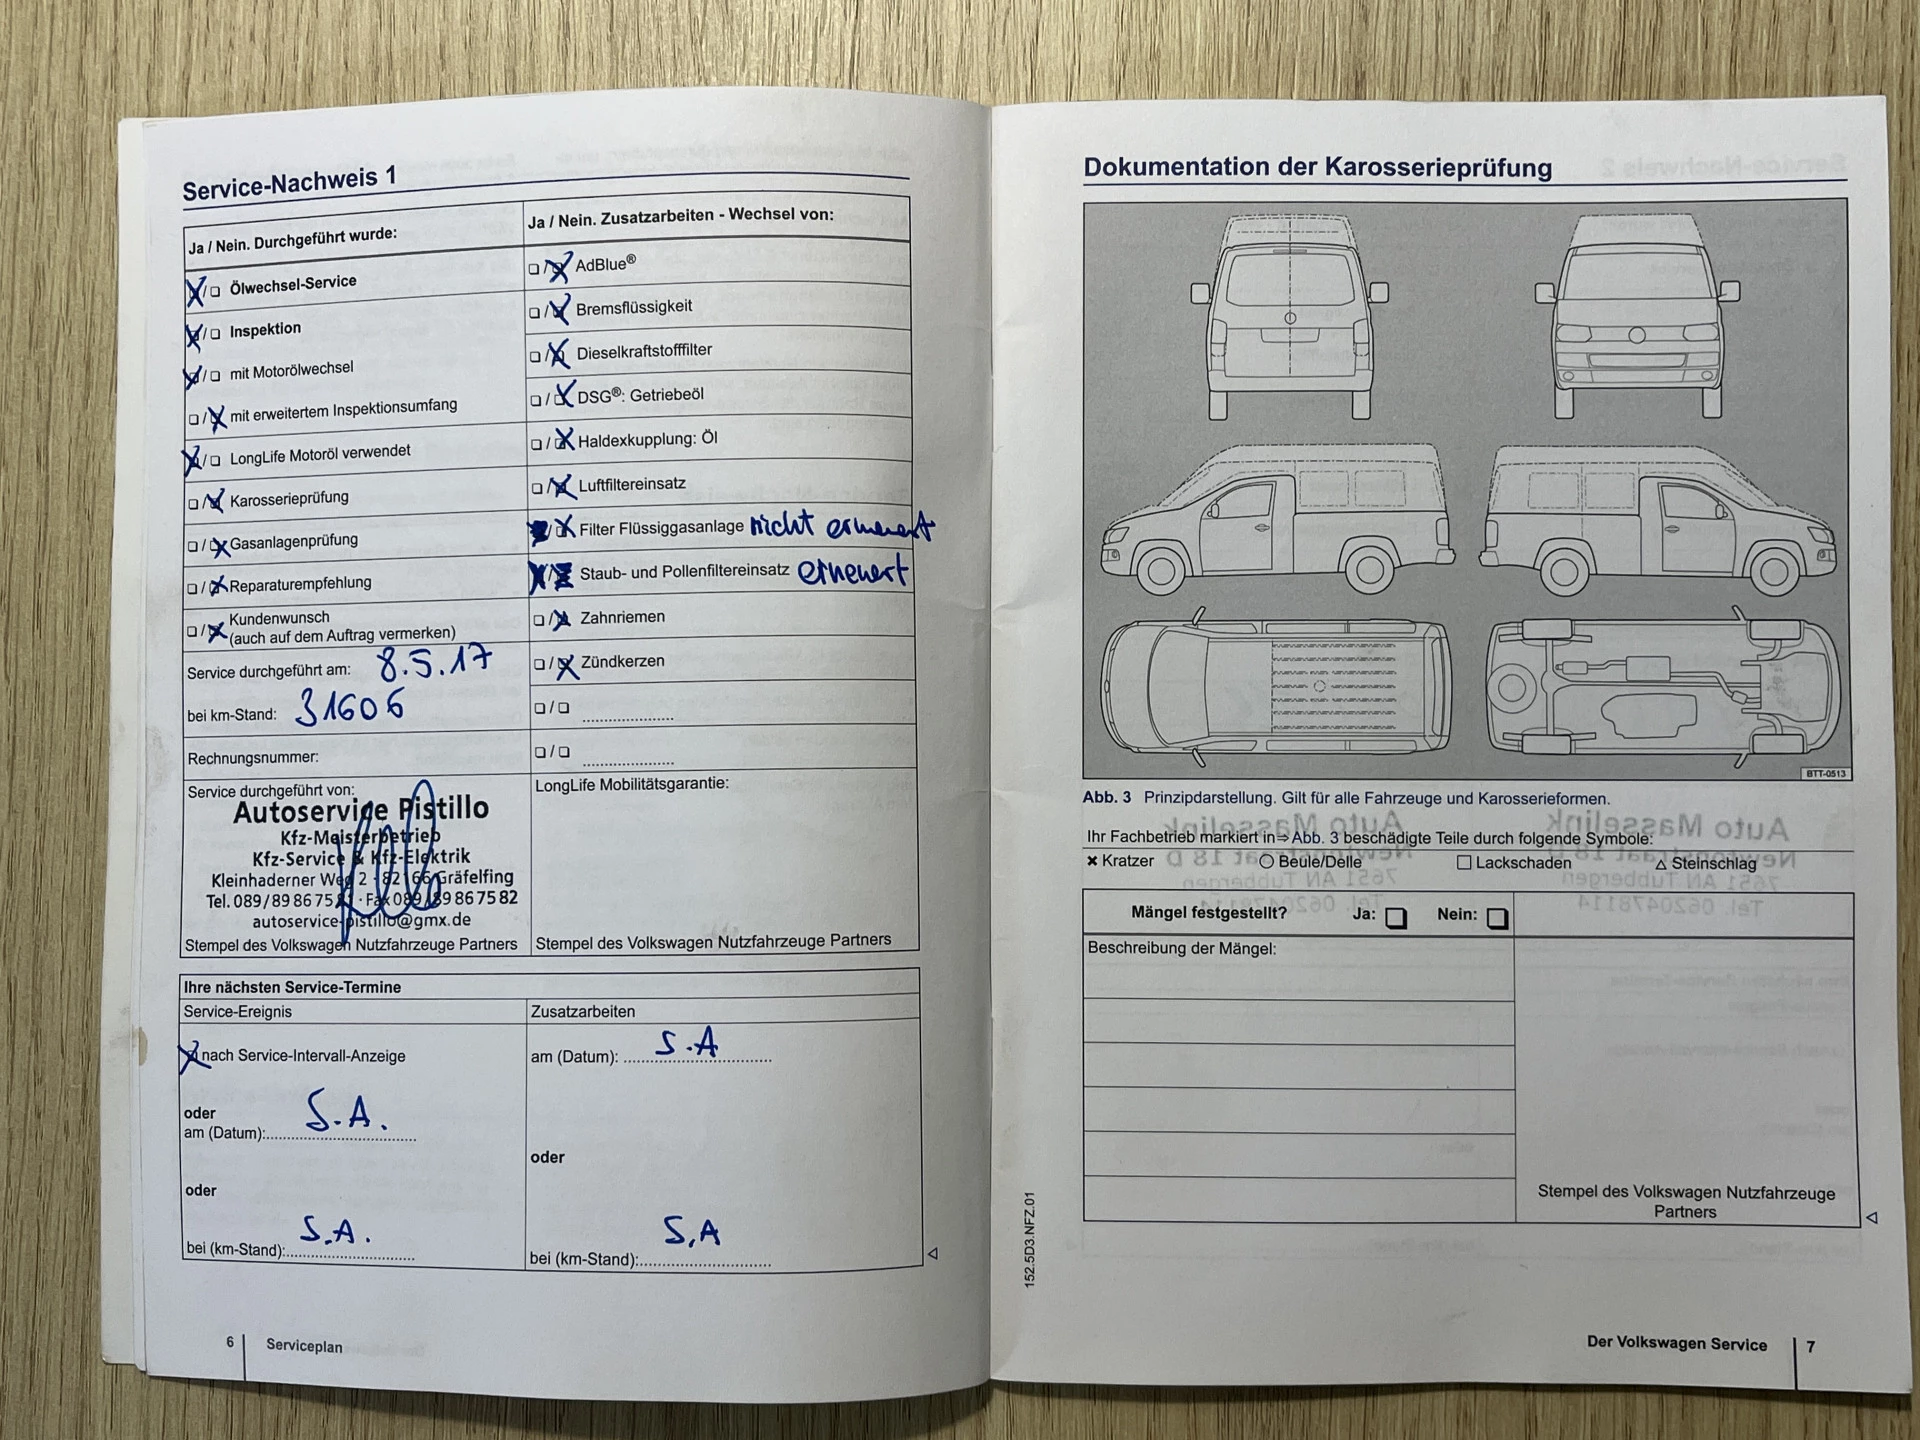 Service-Nachweis 1
Ja / Nein. Durchgeführt wurde:
Ölwechsel-Service
Inspektion
mit Motorölwechsel
mit erweitertem Inspektionsumfang
LongLife Motoröl verwendet
Karosserieprüfung
Gasanlagenprüfung
Reparaturempfehlung
Kundenwunsch
(auch auf dem Auftrag vermerken)
Service durchgeführt am: 8.5.17
bei km-Stand: 31606
Rechnungsnummer:
Service durchgeführt von:
Autoservice Pistillo
Kfz-Meisterbetrieb
Kfz-Service & Kfz-Elektrik
Kleinhaderner Weg 2 · 82166 Gräfelfing
Tel. 089/89 86 75 81 · Fax 089/89 86 75 82
autoservice-pistillo@gmx.de
Stempel des Volkswagen Nutzfahrzeuge Partners
Ja / Nein. Zusatzarbeiten - Wechsel von:
AdBlue®
Bremsflüssigkeit
Dieselkraftstofffilter
DSG®: Getriebeöl
Haldexkupplung: Öl
Luftfiltereinsatz
Filter Flüssiggasanlage nicht erneuert
Staub- und Pollenfiltereinsatz erneuert
Zahnriemen
Zündkerzen
LongLife Mobilitätsgarantie:
Stempel des Volkswagen Nutzfahrzeuge Partners
Ihre nächsten Service-Termine
Service-Ereignis
nach Service-Intervall-Anzeige
oder
am (Datum): S.A.
oder
bei (km-Stand): S.A.
Zusatzarbeiten
am (Datum): S.A
oder
bei (km-Stand): S.A
6 Serviceplan
Dokumentation der Karosserieprüfung
BTT-0513
Abb. 3 Prinzipdarstellung. Gilt für alle Fahrzeuge und Karosserieformen.
Ihr Fachbetrieb markiert in ⇒ Abb. 3 beschädigte Teile durch folgende Symbole:
× Kratzer ○ Beule/Delle □ Lackschaden △ Steinschlag
Mängel festgestellt? Ja: Nein:
Beschreibung der Mängel:
Stempel des Volkswagen Nutzfahrzeuge
Partners
152.5D3.NFZ.01
Der Volkswagen Service 7